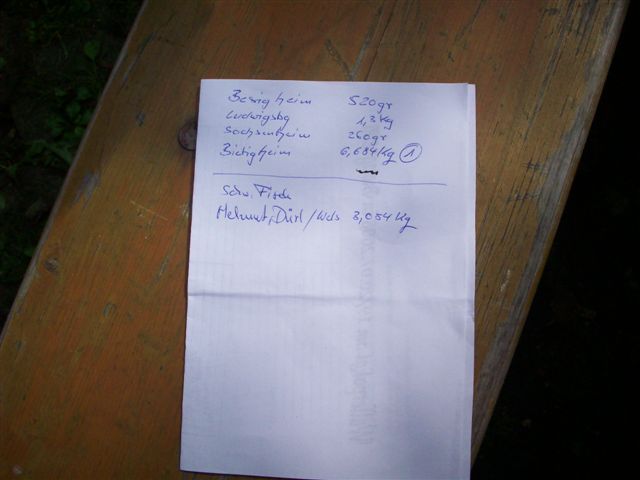 Besigheim 520gr
Ludwigsbg 1,3kg
Sachsenheim 260gr
Bietigheim 6,684kg 1
Schw. Fisch
Helmut, Dürl/Wds 3,054 Kg